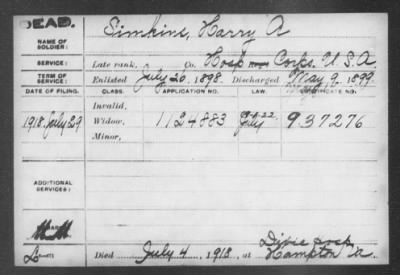 DEAD.
Simkins, Harry A
NAME OF SOLDIER:
SERVICE: Late rank, Co. Hosp Corps, U.S.A
TERM OF SERVICE: Enlisted July 26, 1898. Discharged May 9, 1899
DATE OF FILING. CLASS. APPLICATION NO. LAW. CERTIFICATE NO.
Invalid,
1918, July 29 Widow, 1124883 937276
Minor,
ADDITIONAL SERVICES:
Died July 4, 1918, at Hampton Va.